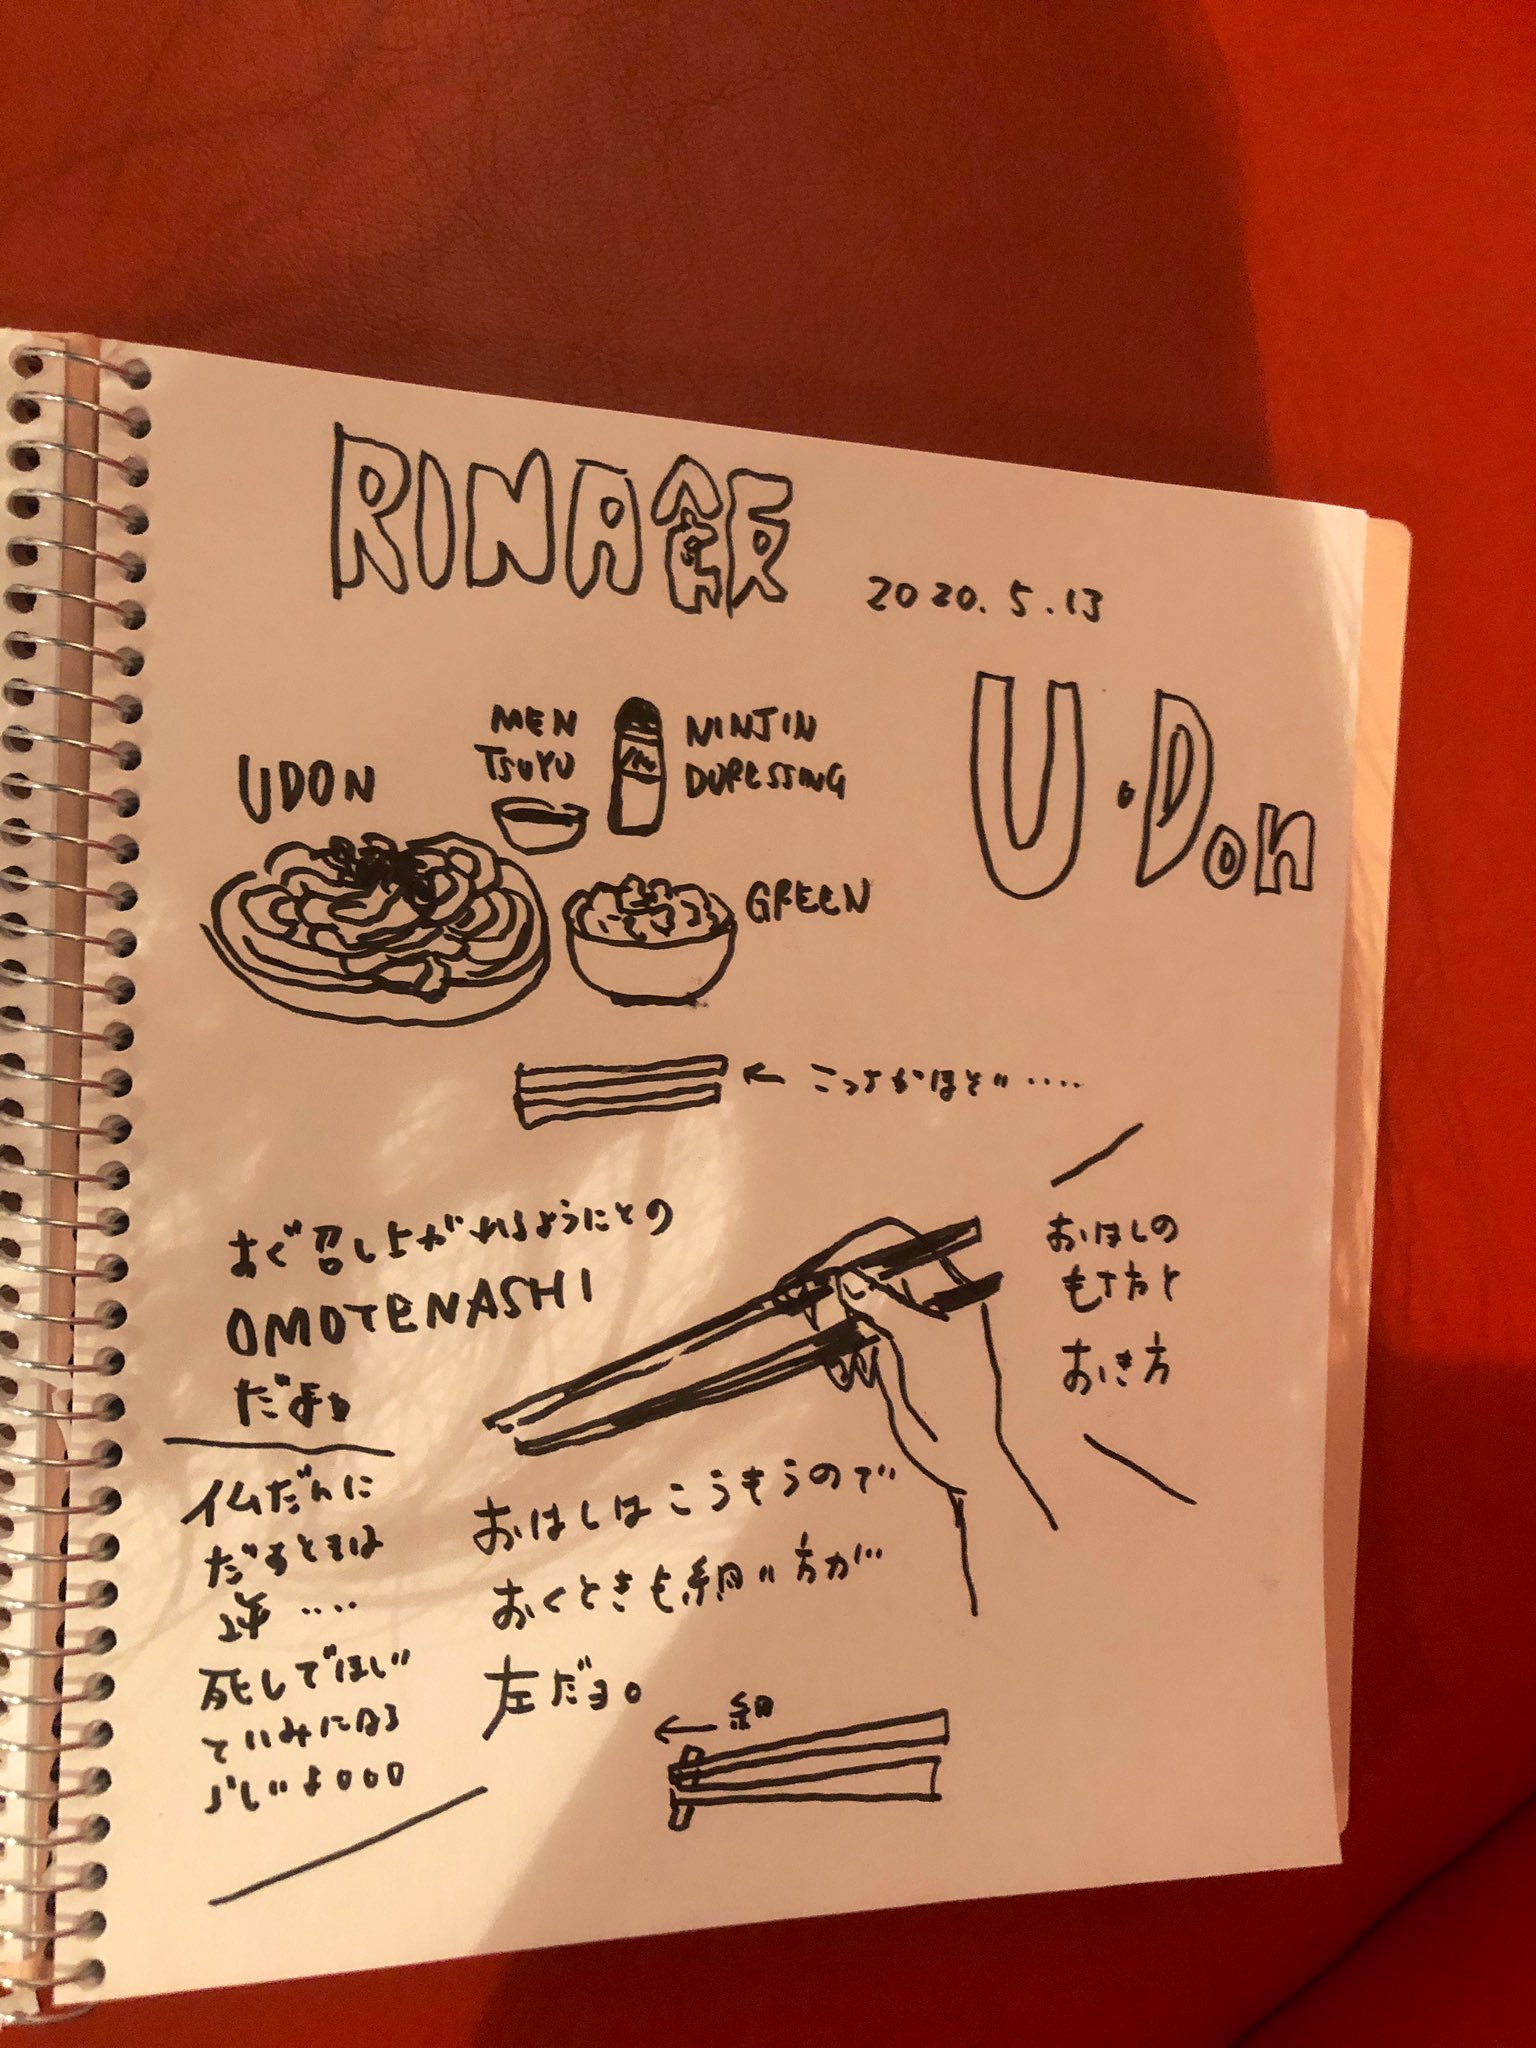 RINA飯
2020.5.13
U.Don
UDON
MEN
TSUYU
NINJIN
DORESSING
GREEN
← こっちがほそい....
すぐ召し上がれるようにとの
OMOTENASHI
だよ。
おはしの
もち方と
おき方
仏だんに
だすときは
逆....
死しでほじ
ていみになる
らしいよ。。。
おはしはこうもつので
おくときも細い方が
左だよ。
← 細